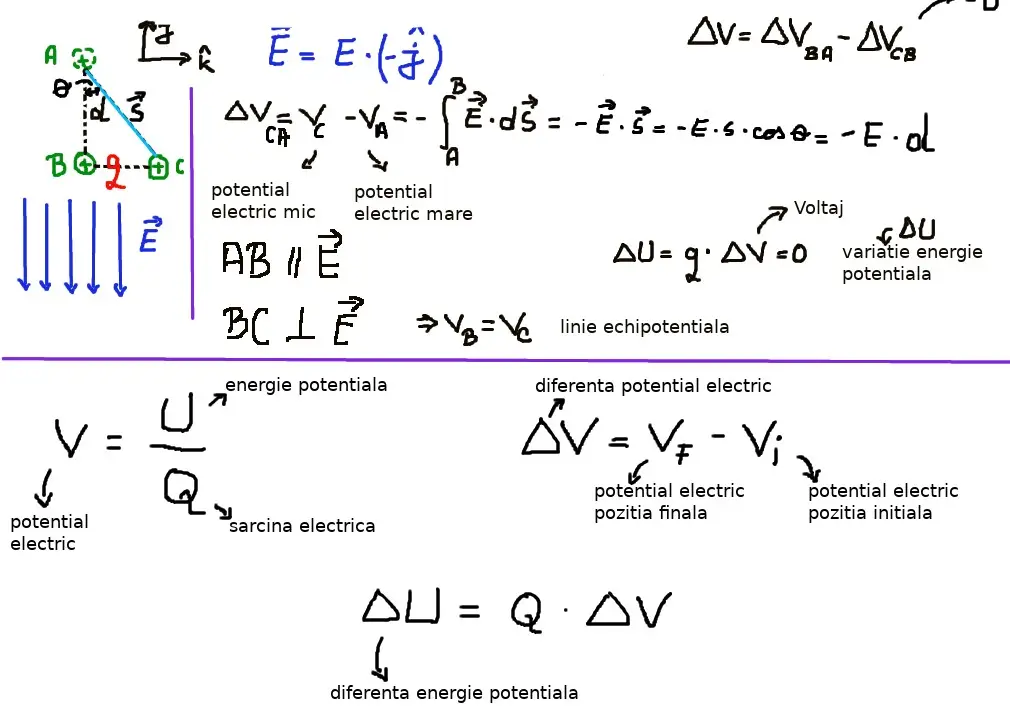 ΔV = ΔV_BA - ΔV_CB
A ĵ k̂
E⃗ = E · (-ĵ)
θ d S⃗
B q C
ΔV_CA = V_C - V_A = - ∫_A^B E⃗ · dS⃗ = - E⃗ · S⃗ = - E · S · cos θ = - E · d
potential
electric mic
potential
electric mare
E⃗
AB ∥ E⃗
Voltaj
ΔU = q · ΔV = 0
ΔU
variatie energie
potentiala
BC ⊥ E⃗ ⇒ V_B = V_C linie echipotentiala
energie potentiala
V = U / Q
potential
electric
sarcina electrica
diferenta potential electric
ΔV = V_F - V_i
potential electric
pozitia finala
potential electric
pozitia initiala
ΔU = Q · ΔV
diferenta energie potentiala